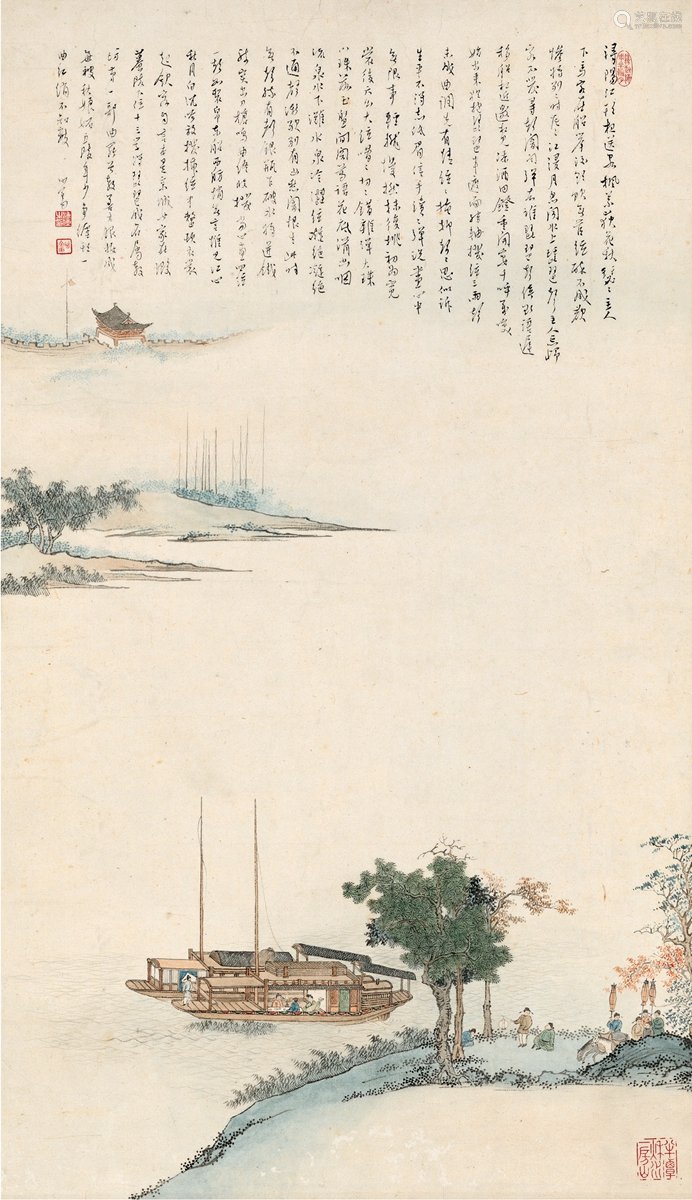 潯陽江頭夜送客楓葉荻花秋瑟〻主人
下馬客在船舉酒欲飲無管絃醉不成歡
慘將別〻時茫〻江浸月忽聞水上琵琶聲主人忘歸
客不發尋聲闇問彈者誰琵琶聲停欲語遲
移船相近邀相見添酒回鐙重開宴千呼萬喚
始出來猶抱琵琶半遮面轉軸撥絃三兩聲
未成曲調先有情絃〻掩抑聲〻思似訴
生平不得志低眉信手續〻彈說盡心中
無限事輕攏慢撚抹復挑初為霓
裳後六幺大絃嘈〻切〻錯雜彈大珠
小珠落玉盤間關鶯語花底滑幽咽
流泉水下灘水泉冷澀絃凝絕凝絕
不通聲漸歇別有幽愁闇恨生此時
無聲勝有聲銀瓶乍破水漿迸鐵
騎突出刀槍鳴曲終收撥當心畫四絃
一聲如裂帛東船西舫悄無言惟見江心
秋月白沈吟放撥插絃中整頓衣裳
起斂容自言本是京城女家在蝦
蟇陵下住十三學得琵琶成名屬教
坊第一部曲罷常教善才服妝成
每被秋娘妒五陵年少爭纏頭一
曲紅綃不知數 心畬
半潭秋水一房山